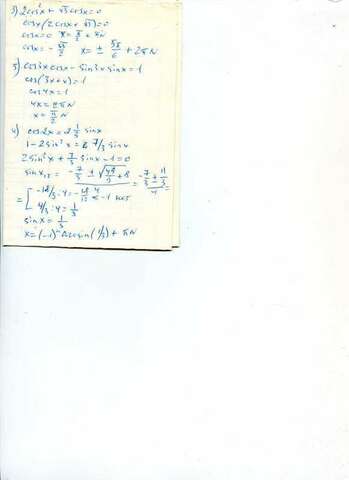 3) 2cos²x + √3 cosx=0
cosx(2cosx+√3)=0
cosx=0 x=π/2+πN
cosx=-√3/2 x=± 5π/6 + 2πN
5) cos3x cosx - sin3x sinx=1
cos(3x+x)=1
cos4x=1
4x=2πN
x=π/2 N
4) cos2x=2 1/3 sinx
1-2sin²x = 7/3 sinx
2sin²x + 7/3 sinx-1=0
sinx₁,₂= (-7/3 ± √(49/9+8))/4 = (-7/3 ± 11/3)/4 =
= [ -18/3:4=-18/12 < -1 нет
4/3:4=1/3
sinx=1/3
x=(-1)ᴺ Arcsin(1/3)+πN